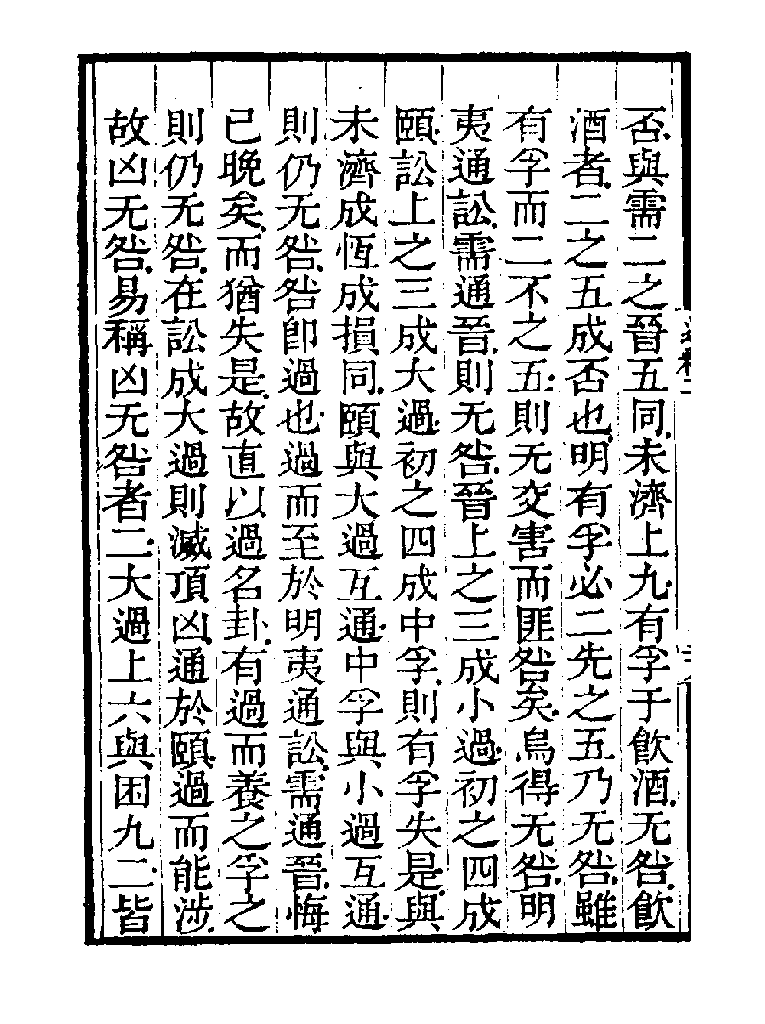 否與需二之晉五同未濟上九有孚于飮酒无咎飮
酒者二之五成否也明有孚必二先之五乃无咎雖
有孚而二不之五則无交害而匪咎矣烏得无咎明
夷通訟需通晉則无咎晉上之三成小過初之四成
頤訟上之三成大過初之四成中孚則有孚失是與
未濟成恆成損同頤與大過互通中孚與小過互通
則仍无咎咎卽過也過而至於明夷通訟需通晉悔
已晚矣而猶失是故直以過名卦有過而養之孚之
則仍无咎在訟成大過則滅頂凶通於頤過而能涉
故凶无咎易稱凶无咎者二大過上六與困九二皆